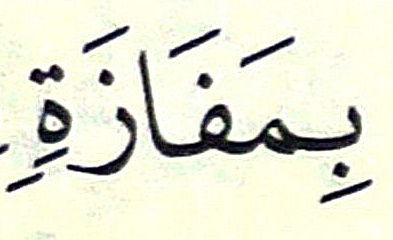 بِمَفَازَةٍ